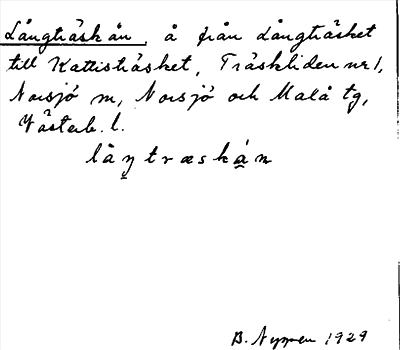 Långträskån, å från Långträsket
till Kattisträsket, Träskliden nr 1,
Norsjö sn, Norsjö och Malå tg,
Västerb. l.
låŋtræskán
B. Nyman 1929